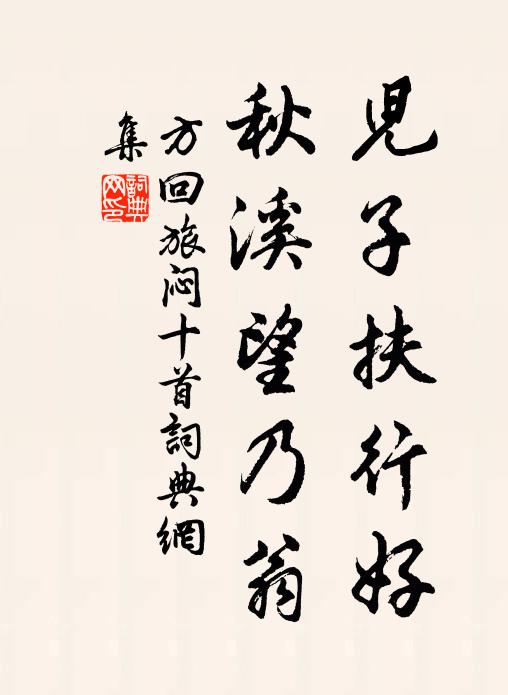 児子扶行好
秋溪望乃翁
方回旅闷十首詞典網
集
詞典網印